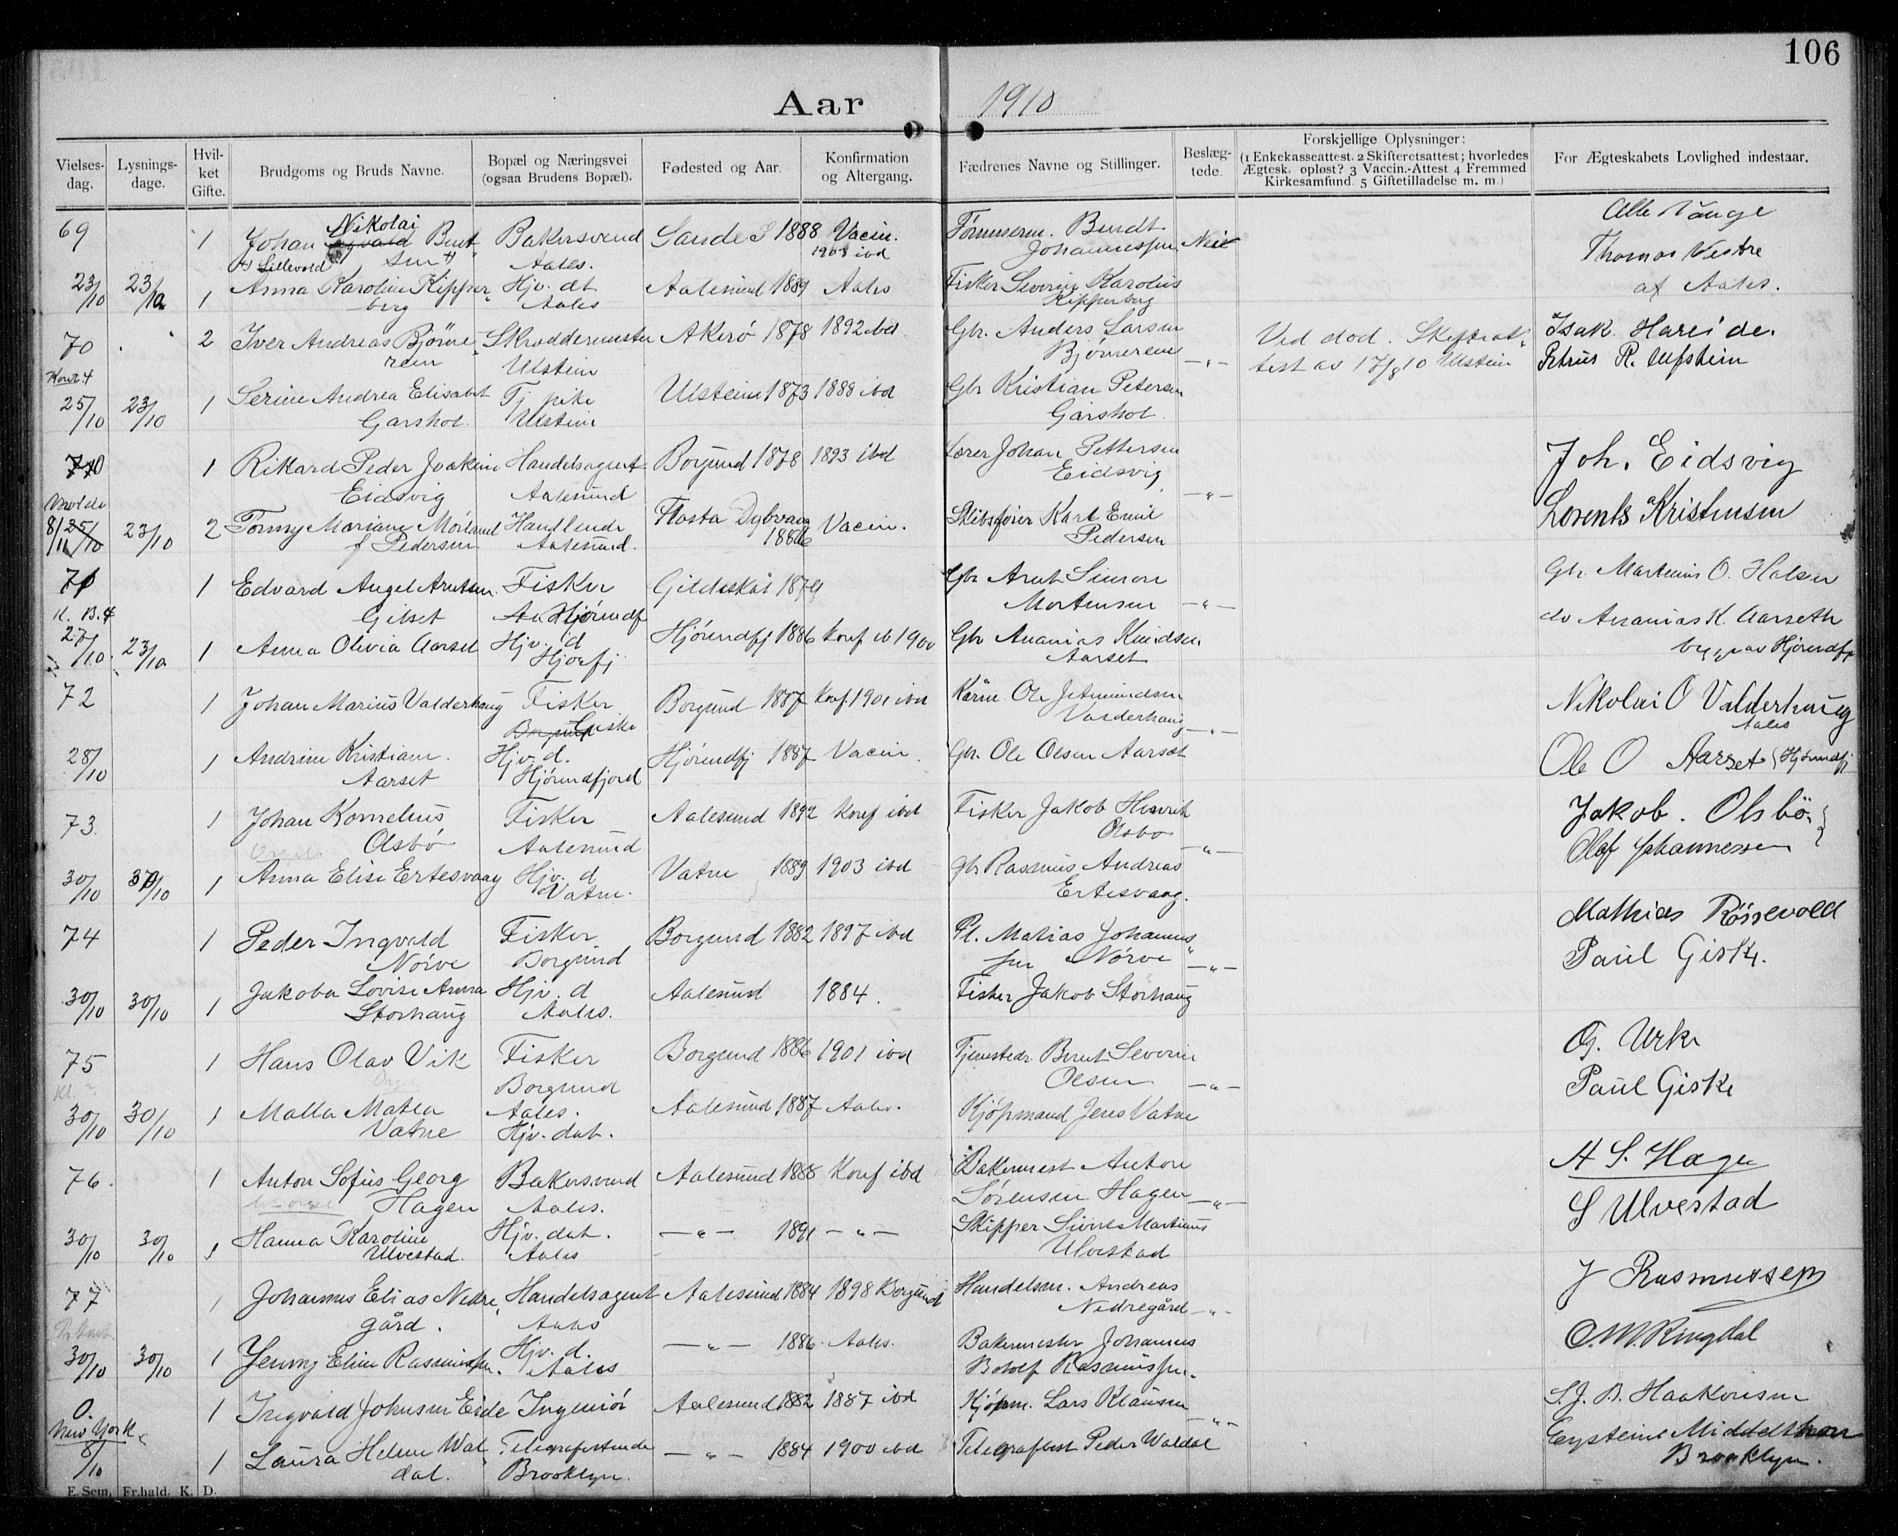 106
Aar 1910
Vielses-dag. Lysnings-dage. Hvil-ket Gifte. Brudgoms og Bruds Navne. Bopæl og Næringsvei (ogsaa Brudens Bopæl). Fødested og Aar. Konfirmation og Altergang. Fædrenes Navne og Stillinger. Beslæg-tede. Forskjellige Oplysninger: (1 Enkekasseattest. 2 Skifteretsattest; hvorledes Ægtesk. opløst? 3 Vaccin.-Attest 4 Fremmed Kirkesamfund. 5 Giftetilladelse m. m.) For Ægteskabets Lovlighed indestaar.
69 1 Johan Nikolai Bakersvend Sande S 1888 Vacin. Berndt
Lillevold Aales. 1903 ibd Johannessen Nei Thomas Vestre
23/10 23/10 1 Anna Karoline Kipper Hjv. dt Aalesund 1889 Aales Fisker Severin Karolius af Aales.
berg Aales Kipperberg
70 2 Iver Andreas Bjørne Skræddermester Akerø 1878 1892 ibd Gbr. Anders Larsen Ved død. Isak Hareide.
rem Ulstein Bjørnerem -„- test av 17/8 10 Ulstein Petrus R. Ulfstein
25/10 23/10 1 Serine Andrea Elisabet Tj pike Ulstein 1873 1888 ibd Gbr Kristian Petersen
Garshol. Ulstein Garshol.
1 Rikard Peder Joakim Handelsagent Borgund 1878 1893 ibd Lærer Johan Pettersen Joh. Eidsvig
Eidsvig Aalesund Eidsvig -„-
Molde
8/11 25/10 23/10 2 Handlende Flosta Vacin. Skibsfører Karl Emil Lorents Kristensen
f Pedersen Aalesund. Pedersen
71 1 Edvard Angel Arntsen Fisker Gildeskål 1879 Gbr Arnt Simon Gbr. Martinus O. Halsen
Gilset Hjørundf Mortensen -„- do Ananias K. Aarseth
27/10 23/10 1 Anna Olivia Aarset Hjv. d Hjørundfj 1886 konf ib 1900 Gbr Ananias Knudsen
Aarset av Hjørundfj
72 1 Johan Marius Valderhaug Fisker Borgund 1887 konf. 1901 ibd Ole Jetmundsen Nikolai O Valderhaug
Giske Valderhaug -„- Aales
28/10 1 Andrine Kristiane Hjv. d. Hjørundfj 1887 Vacin. Gbr. Ole Olsen Aarset Ole O Aarset Hjørundfj
Aarset Hjørundfjord
73. 1 Johan Kornelius Fisker Aalesund 1892 konf ibd Fisker Jakob Henrik Jakob. Olsbö.
Olsbö Aalesund Olsbø -„- Olaf Johannessen
30/10 30/10 1 Anna Elise Ertesvaag Hjv. d Vatne 1889 1903 ibd Gbr Rasmus Andreas
Vatne. Ertesvaag.
74 1 Peder Ingvald Fisker Borgund 1882 1897 ibd Pl. Matias Johannes Mathias Røsevold
Nørve Borgund sen Nørve -„- Paul Giske.
30/10 30/10 1 Jakoba Lovise Anna Hjv. d Aalesund 1884. Fisker Jakob Storhaug
Storhaug Aales.
75 1 Hans Olav Vik Fisker Borgund 1886 1901 ibd Bernt Severin O. Urke
Borgund Olsen -„- Paul Giske
30/10 30/10 1 Malla Matea Aales. Aalesund 1887 Aales. Kjøpmand Jens Vatne
Vatne Hjv. dat.
76. 1 Anton Sofus Georg Bakersvend Aalesund 1888 Konf ibd Bakermest Anton A S. Hagen
Hagen Aales. Sørensen Hagen -„- S Ulvestad
30/10 30/10 1 Hanna Karoline Hjv. dat. -„- 1891 -„- Skipper Sivert Martinus
Ulvestad. Aales Ulvestad
77 1 Johannes Elias Nedre Handelsagent Aalesund 1884 1898 Borgund Handelsm. Andreas J Rasmussen
gård. Aales Nedregård -„-
30/10 30/10 1 Jenny Eline Rasmussen. Hjv. d. -„- 1886 Aales. Bakermester Johannes O. M. Ringdal
Aales Botolf Rasmussen.
0. 1 Ingvald Johnsen Eide Ingeniör Aalesund 1882 1887 ibd Kjøpm. Lars Klausen S. J. B. Haakonsen
New York -„- Eysteine Middelthon
8/10 1 Laura Helene Wal Telegrafistinde -„- 1884 1900 ibd Telegrafbest Peder Waldal Brooklyn.
dal. Brooklyn.
E. Sem, Fr.hald. K. D.